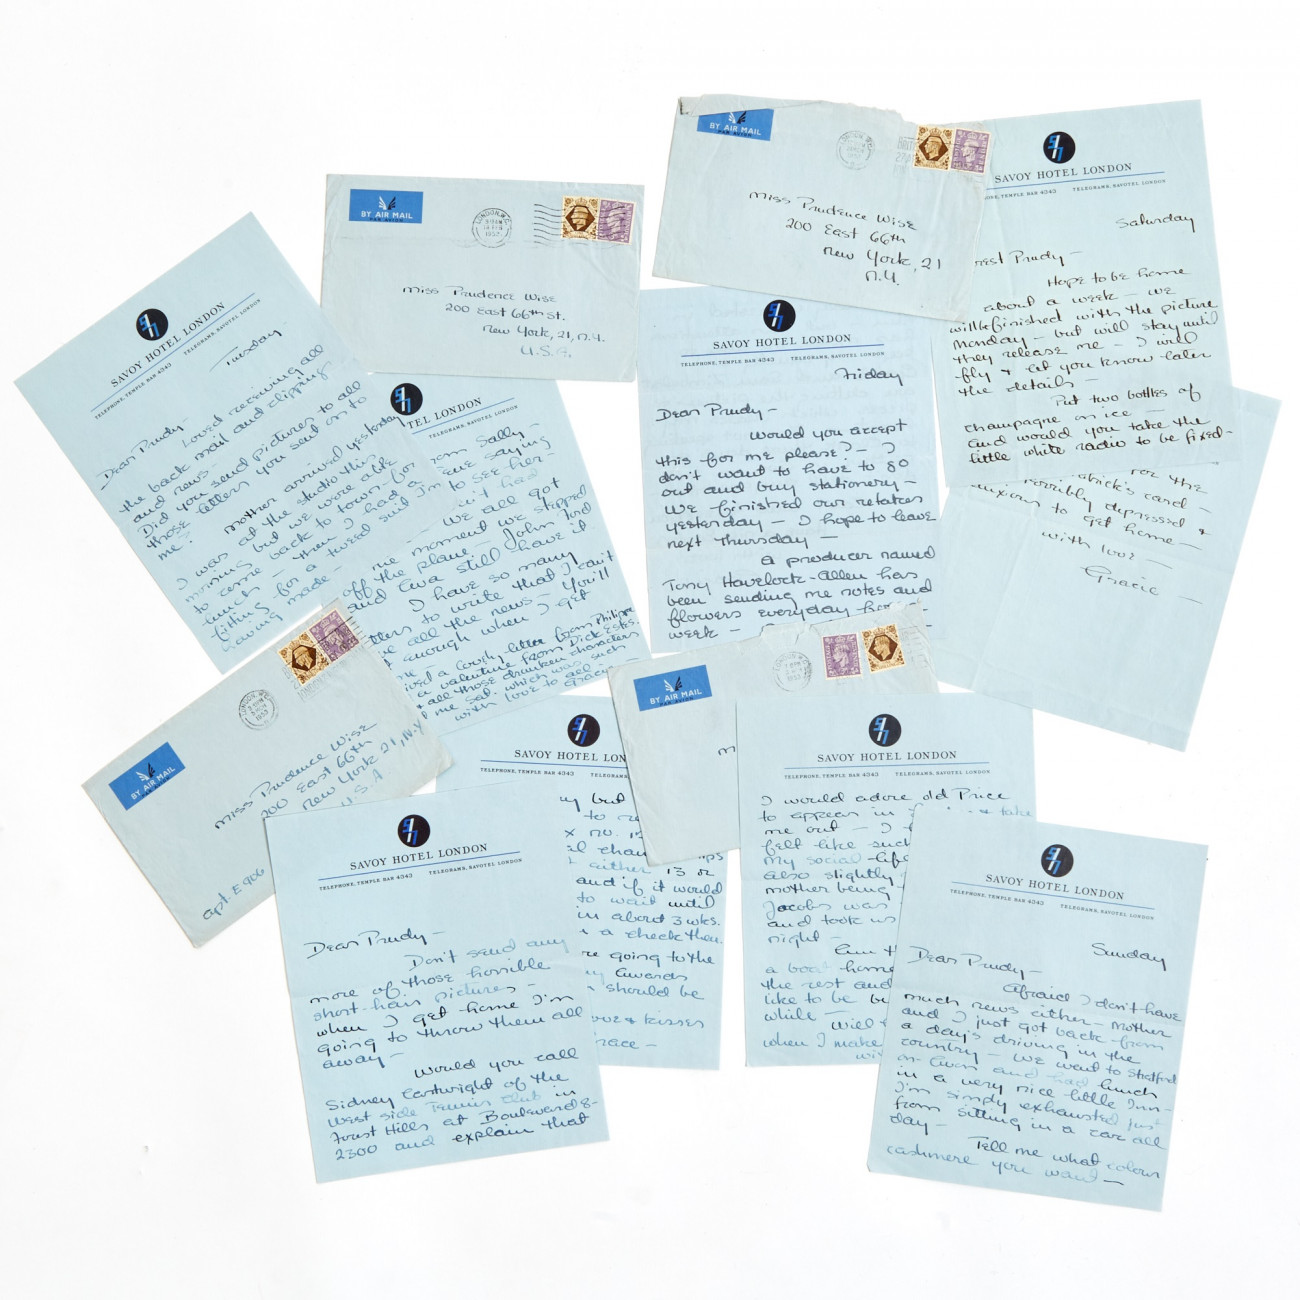 BY AIR MAIL
PAR AVION
LONDON. W.C.
1953
Miss Prudence Wise
200 East 66th St.
New York, 21, N.Y.
U.S.A.
BY AIR MAIL
PAR AVION
LONDON
Miss Prudence Wise
200 East 66th
New York, 21
N.Y.
SAVOY HOTEL LONDON
TELEPHONE, TEMPLE BAR 4343 TELEGRAMS, SAVOTEL LONDON
Saturday
Hope to be home
about a week — we
will finished with the picture
Monday — but will stay until
they release me — I will
fly & let you know later
the details —
Put two bottles of
champagne on ice —
and would you take the
little white radio to be fixed —
for the
card —
horribly depressed &
anxious to get home —
with love —
Gracie —
SAVOY HOTEL LONDON
TELEPHONE, TEMPLE BAR 4343 TELEGRAMS, SAVOTEL LONDON
Tuesday
Dearest Prudy —
Loved receiving all
the back mail and clipping
and news —
Did you send pictures to all
those letters you sent on to
me?
Mother arrived yesterday
I was at the studio this
morning but we were able
to come back to town for
lunch — then I had a
fitting for a tweed suit I'm
having made —
SAVOY HOTEL LONDON
TELEGRAMS, SAVOTEL LONDON
Sally —
saying
to see her —
had
we all got
the moment we stepped
off the plane — John Ford
and Ava still have it
I have so many
letters to write that I can't
all the news — You'll
enough when I get
a lovely letter from Philippa
a valentine from Dick Estes.
all those drunken characters
which was such
with love to all —
SAVOY HOTEL LONDON
TELEPHONE, TEMPLE BAR 4343 TELEGRAMS, SAVOTEL LONDON
Friday
Dear Prudy —
Would you accept
this for me please? — I
don't want to have to go
out and buy stationery —
We finished our retakes
yesterday — I hope to leave
next Thursday —
a producer named
Tony Havelock-Allen has
been sending me notes and
flowers everyday
week —
LONDON. W.C.
1953
BY AIR MAIL
PAR AVION
Miss Prudence Wise
200 East 66th
New York 21, N.Y.
U.S.A
apt. E 906
BY AIR MAIL
PAR AVION
LONDON
1953
SAVOY HOTEL LONDON
TELEPHONE, TEMPLE BAR 4343 TELEGRAMS, SAVOTEL LONDON
Dear Prudy —
Don't send any
more of those horrible
short-hair pictures —
when I get home I'm
going to throw them all
away —
Would you call
Sidney Cartwright of the
West Side Tennis Club in
Forest Hills at Boulevard 8-
2300 and explain that
SAVOY HOTEL LONDON
TELEPHONE, TEMPLE BAR 4343 TELEGRAMS,
but
to
no.
either 13 or
and if it would
to wait until
in about 3 wks.
a check then.
going to the
awards
should be
love & kisses
SAVOY HOTEL LONDON
TELEPHONE, TEMPLE BAR 4343 TELEGRAMS, SAVOTEL LONDON
I would adore old Price
to appear in & take
me out — I
felt like such
my social life
also slightly
mother being
Jacobs was
and took us
night —
a boat home
the rest and
like to be
while —
Will
when I make
SAVOY HOTEL LONDON
TELEPHONE, TEMPLE BAR 4343 TELEGRAMS, SAVOTEL LONDON
Sunday
Dear Prudy —
Afraid I don't have
much news either — Mother
and I just got back from
a day's driving in the
country — we went to Stratford
on Avon and had lunch
in a very nice little Inn —
I'm simply exhausted just
from sitting in a car all
day —
Tell me what colour
cashmere you want —